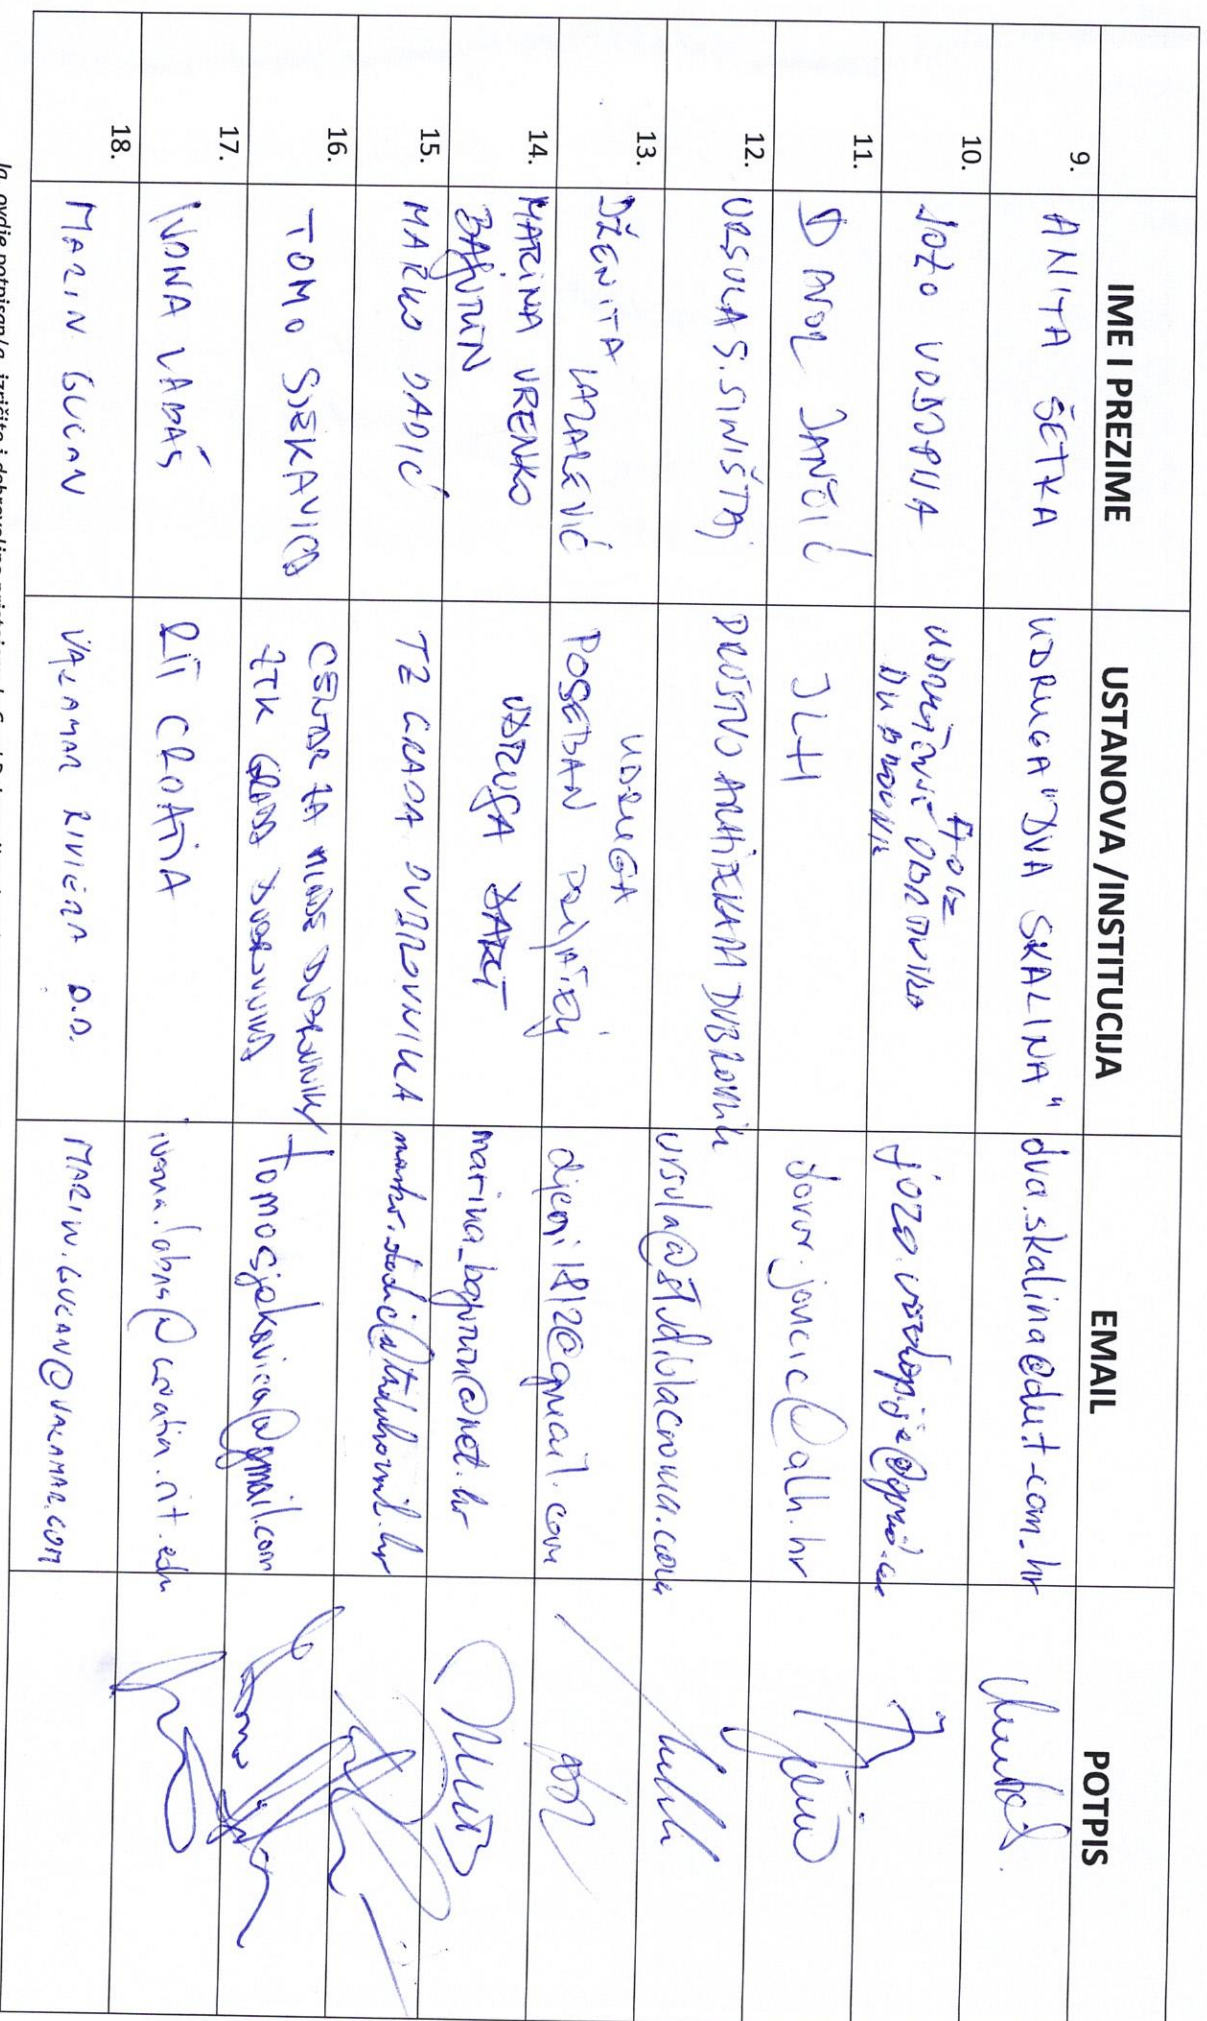 IME I PREZIME USTANOVA /INSTITUCIJA EMAIL POTPIS
9. ANITA ŠETKA UDRUGA "DVA SKALINA" dva.skalina@du.t-com.hr
10. JOZO VODOPIJA UDRUŽENJE OBRTNIKA DUBROVNIK
11. DAVOR JANČIĆ davor.jancic@alh.hr
12. URSULA S. SINIŠTAJ DRUŠTVO ARHITEKATA DUBROVNIK ursula@studiolacroma.com
13. DŽENITA LAZAREVIĆ UDRUGA
POSEBAN PRIJATELJ djeni1812@gmail.com
14. MARINA VRENKO
BAJURIN UDRUGA DART marina_bajurin@net.hr
15. MARKO DADIĆ TZ GRADA DUBROVNIKA marko.dadic@tzdubrovnik.hr
16. TOMO SJEKAVICA CENTAR ZA MLADE DUBROVNIK/
ZTK GRADA DUBROVNIKA tomosjekavica@gmail.com
17. IVONA LABAŠ RIT CROATIA ivona.labas@croatia.rit.edu
18. MARIN GUCAN VALAMAR RIVIERA D.D. MARIN.GUCAN@VALAMAR.COM